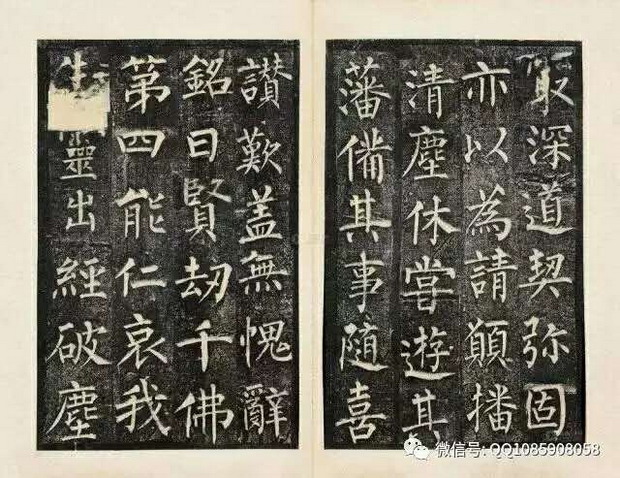 冣深道契弥固
亦以為請願播
清塵休甞遊其
藩備其事隨喜
讚歎盖無愧辭
銘曰賢劫千佛
第四能仁哀我
靈出經破塵
微信号: QQ1085908058